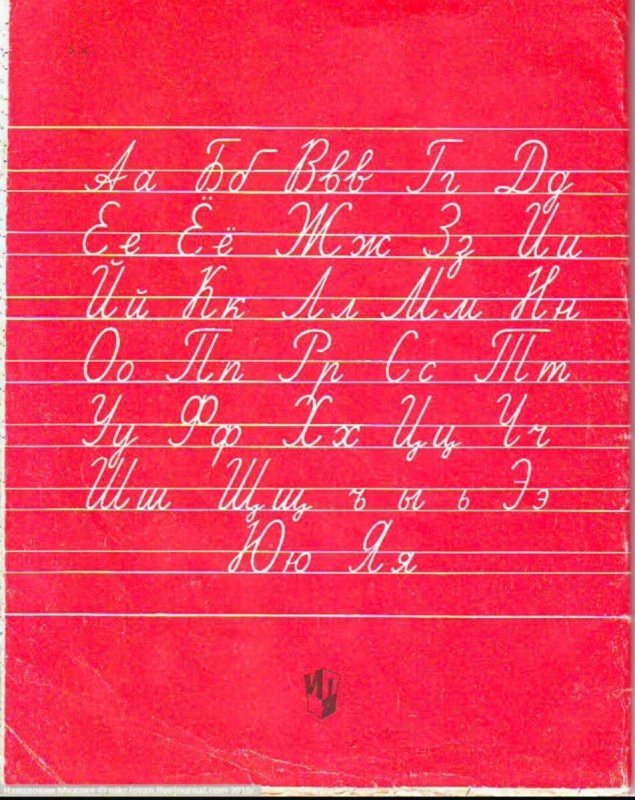 Аа Бб Ввв Гг Дд
Ее Ёё Жж Зз Ии
Йй Кк Лл Мм Нн
Оо Пп Рр Сс Тт
Уу Фф Хх Цц Чч
Шш Щщ ъ ы ь Ээ
Юю Яя
© nikolovan.livejournal.com